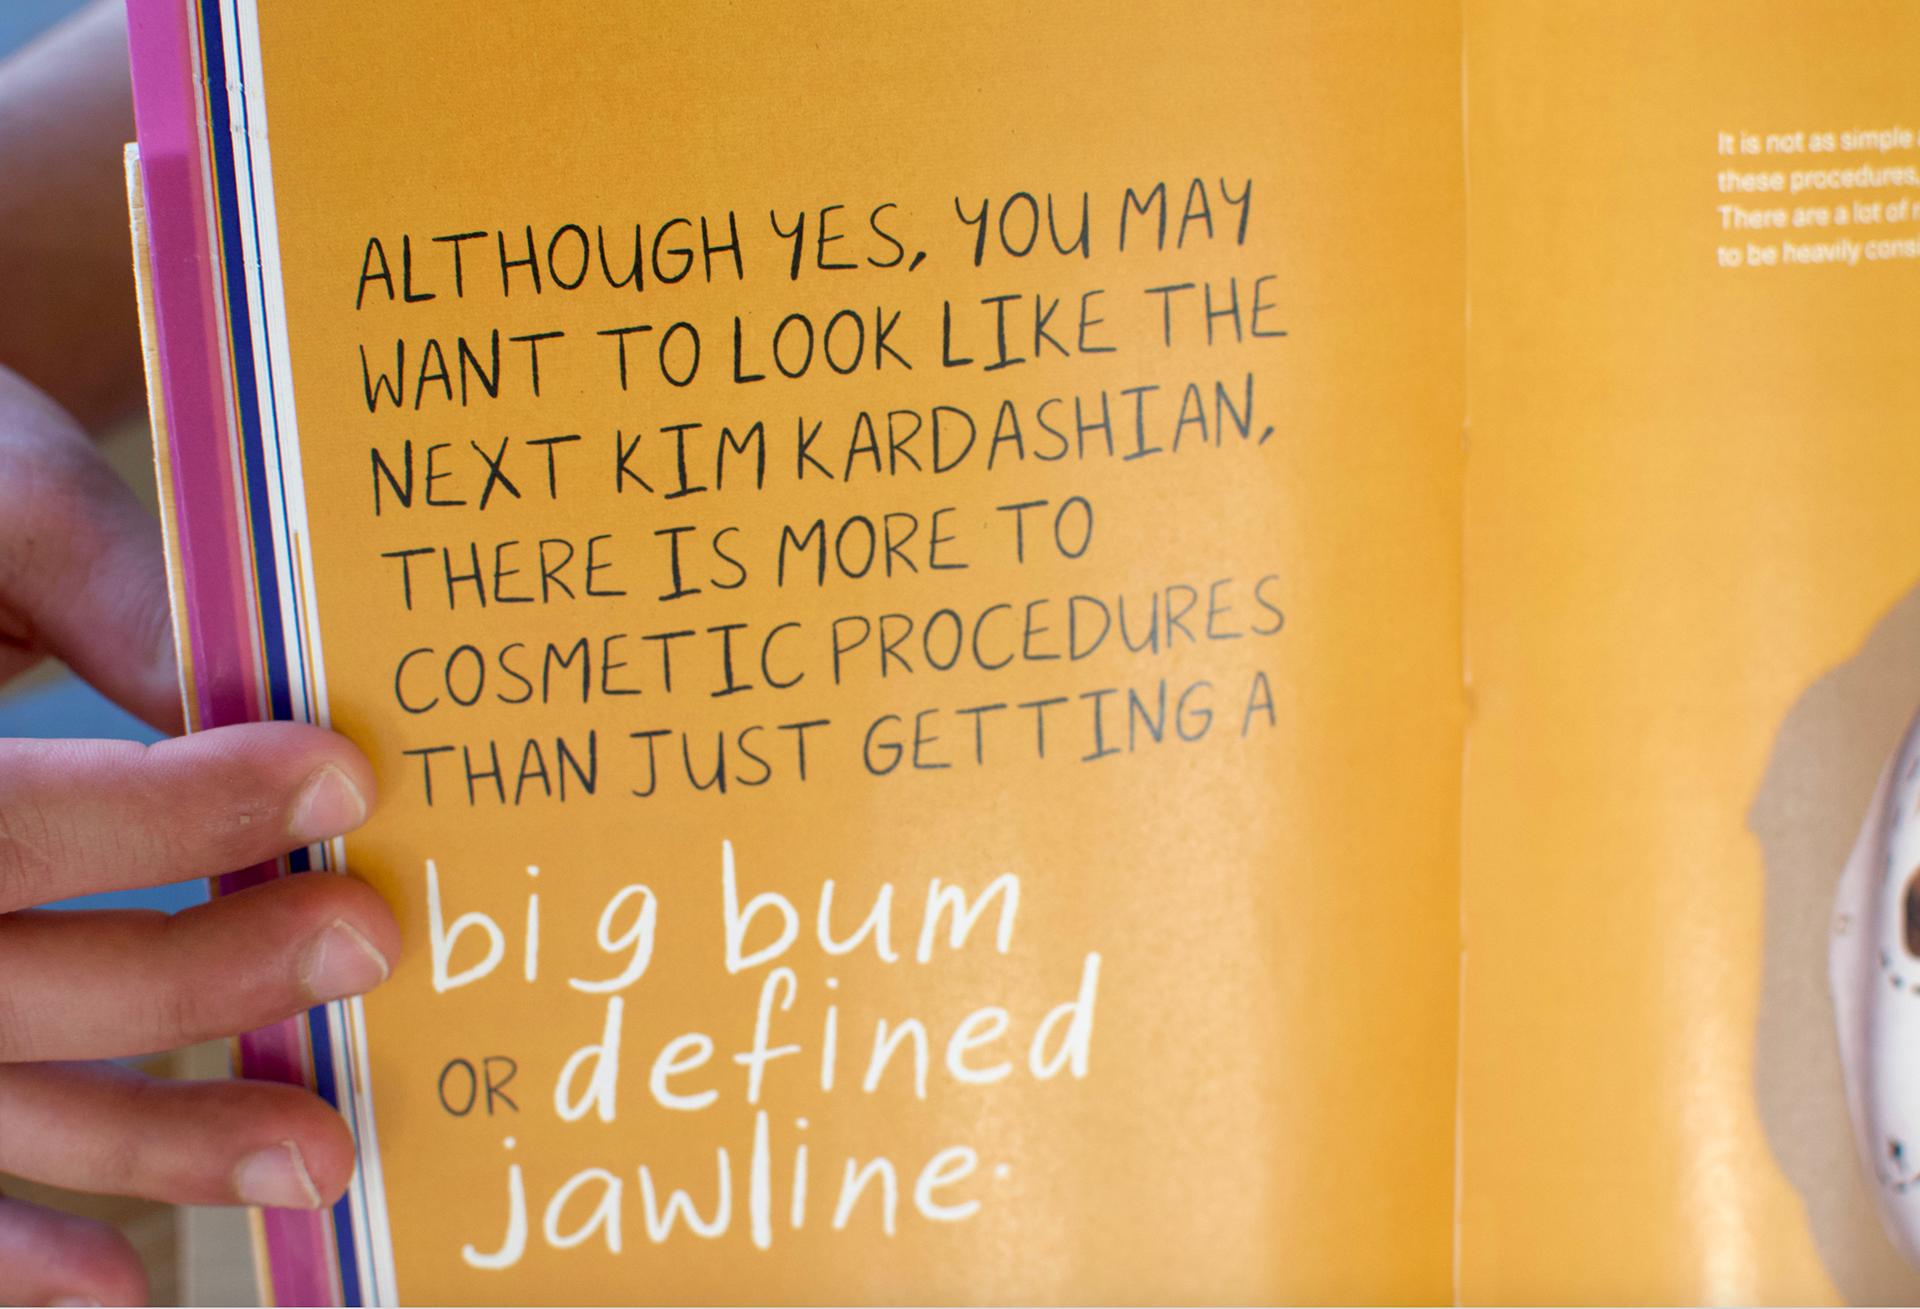 ALTHOUGH YES, YOU MAY
WANT TO LOOK LIKE THE
NEXT KIM KARDASHIAN,
THERE IS MORE TO
COSMETIC PROCEDURES
THAN JUST GETTING A
big bum
OR defined
jawline.
It is not as simple
these procedures,
There are a lot of
to be heavily